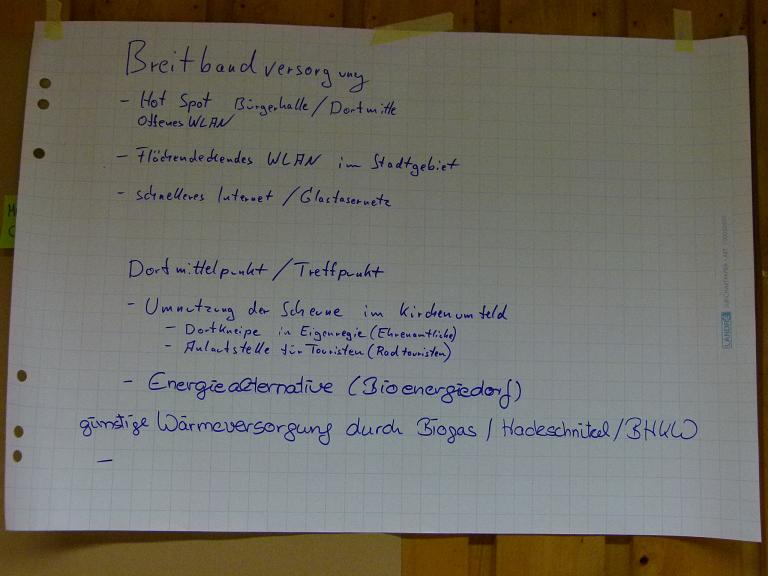 Breitbandversorgung
- Hot Spot Bürgerhalle/Dorfmitte
Offenes WLAN
- Flächendeckendes WLAN im Stadtgebiet
- schnelleres Internet / Glasfasernetz
Dorfmittelpunkt / Treffpunkt
- Umnutzung der Scheune im Kirchenumfeld
- Dorfkneipe in Eigenregie (Ehrenamtliche)
- Anlaufstelle für Touristen (Radtouristen)
- Energiealternative (Bioenergiedorf)
günstige Wärmeversorgung durch Biogas / Hackschnitzel / BHKW
-
LANDRÉ